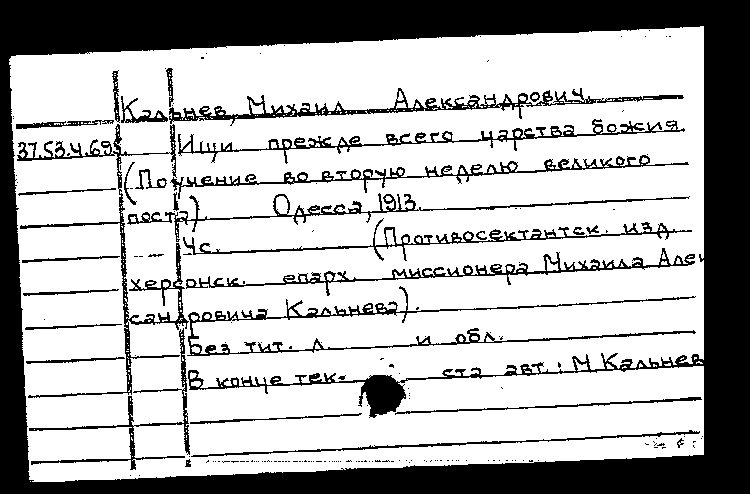 Кальнев, Михаил Александрович.
37.53.4.695. Ищи прежде всего царства божия.
(Поучение во вторую неделю великого
поста). Одесса, 1913.
4с. (Противосектантск. изд.
херсонск. епарх. миссионера Михаила Алек
сандровича Кальнева).
Без тит. л. и обл.
В конце тек- ста авт.: М. Кальнев